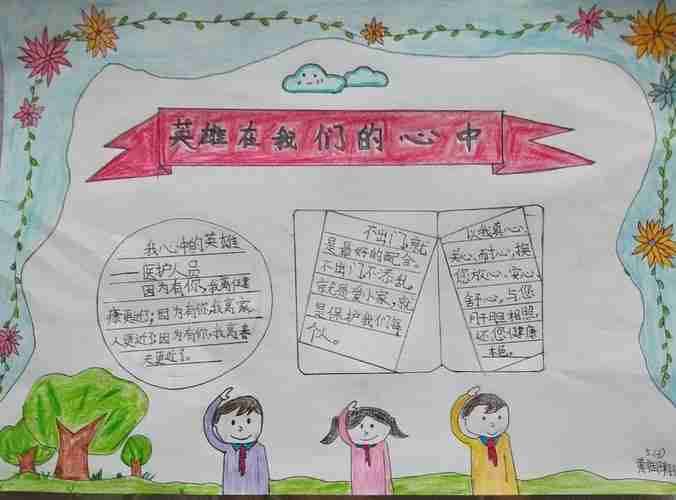 英雄在我们的心中
我心中的英雄
——医护人员
因为有你,我离健
康更近了;因为有你,我离家
人更近了因为有你,我离春
天更近了。
不出门,就
是最好的配合。
不出门不添乱,
就是爱小家,就
是保护我们每
个人。
以我真心、
关心、耐心,换
您放心、安心、
舒心,与您
肝胆相照,
还您健康
本色。